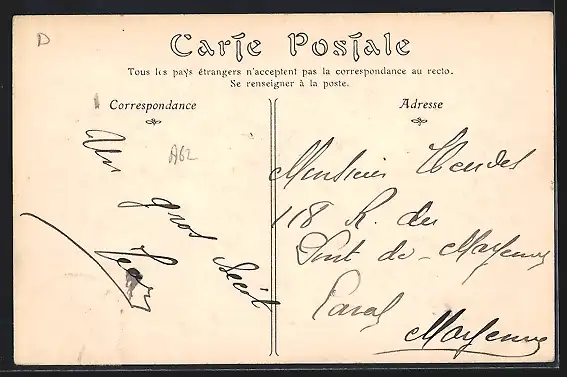 D
Carte Postale
Tous les pays étrangers n'acceptent pas la correspondance au recto.
Se renseigner à la poste.
Correspondance
Adresse
A62
Un gros
Monsieur
118 R. du
Pont de Mayenne
Laval
Mayenne